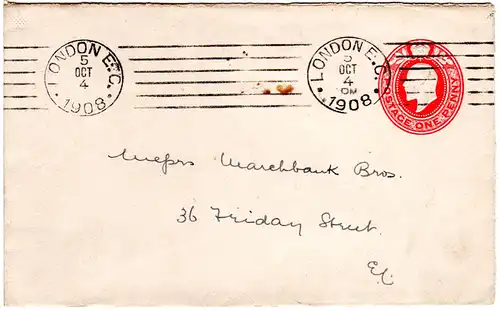 LONDON E.C.
5
OCT
4
1908
LONDON E.C.
5
OCT
4
PM
1908
POSTAGE ONE PENNY
Messrs Marchbank Bros.
36 Friday Street.
E.C.